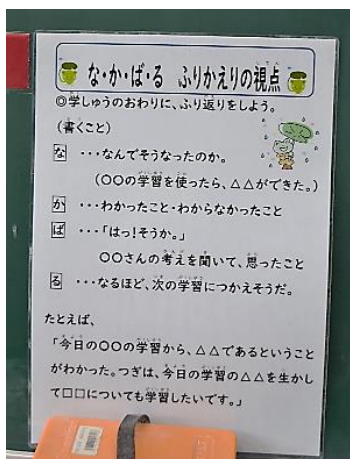 な・か・ば・る ふりかえりの視点
◎学しゅうのおわりに、ふり返りをしよう。
(書くこと)
な ・・・なんでそうなったのか。
(○○の学習を使ったら、△△ができた。)
か ・・・わかったこと・わからなかったこと
ば ・・・「はっ!そうか。」
○○さんの考えを聞いて、思ったこと
る ・・・なるほど、次の学習につかえそうだ。
たとえば、
「今日の○○の学習から、△△であるということ
がわかった。つぎは、今日の学習の△△を生かし
て□□についても学習したいです。」